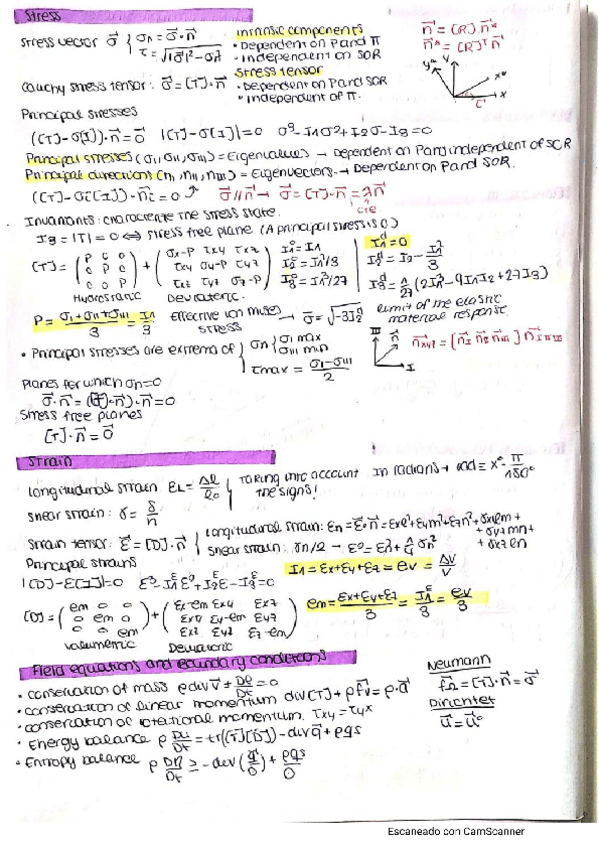 Stress
Stress vector σ⃗ { σn = σ⃗·n⃗
τ = √|σ⃗|² - σn²
Intrinsic components
• Dependent on P and π
• Independent on SOR
n⃗ = [R]·n⃗*
n⃗* = [R]ᵀ n⃗
Cauchy stress tensor: σ⃗ = [T]·n⃗
Stress tensor
• Dependent on P and SOR
• Independent of π.
y* y x* x
Principal stresses
([T]-σ[I])·n⃗ = 0⃗ |[T]-σ[I]| = 0 σ³-I1σ²+I2σ-I3=0
Principal stresses (σI, σII, σIII) = Eigenvalues → Dependent on P and independent of SOR
Principal directions (nI, nII, nIII) = Eigenvectors → Dependent on P and SOR.
([T]-σi[I])·n⃗i = 0 σ⃗//n⃗ → σ⃗ = [T]·n⃗ = λn⃗
cte
Invariants: characterize the stress state.
I3 = |T| = 0 ⇔ stress free plane (A principal stress is 0)
[T] = (P 0 0 / 0 P 0 / 0 0 P) + (σx-P τxy τxz / τxy σy-P τyz / τxz τyz σz-P)
Hydrostatic Deviatoric.
I1⁰ = I1
I2⁰ = I1²/3
I3⁰ = I1³/27
I1ᵈ = 0
I2ᵈ = I2 - I1²/3
I3ᵈ = 1/27 (2I1³-9I1I2+27I3)
P = (σI+σII+σIII)/3 = I1/3
Effective Von Mises stress → σ̄ = √-3I2ᵈ
limit of the elastic material response.
• Principal stresses are extrema of { σn { σI max
σIII min
τmax = (σI-σIII)/2
III n⃗ I
n⃗xyz = [n⃗I n⃗II n⃗III] n⃗I II III
Planes for which σn=0
σ⃗·n⃗ = ([T]·n⃗)·n⃗ = 0
Stress free planes
[T]·n⃗ = 0⃗
Strain
Longitudinal strain εL = Δl/l0
Shear strain: γ = δ/h
} Taking into account the signs!
In radians → rad = x°·π/180°
Strain tensor: ε⃗ = [D]·n⃗ { Longitudinal strain: εn = ε⃗·n⃗ = εxl²+εym²+εzn²+γxylm+
+γyzmn+
+γxzln
shear strain: γn/2 → ε² = εn²+1/4 γn²
Principal strains
|[D]-ε[I]|=0 ε³-I1ε²+I2ε-I3=0
I1 = εx+εy+εz = ev = ΔV/V
[D] = (em 0 0 / 0 em 0 / 0 0 em) + (εx-em εxy εxz / εxy εy-em εyz / εxz εyz εz-em)
Volumetric Deviatoric
em = (εx+εy+εz)/3 = I1/3 = ev/3
Field equations and boundary conditions
• conservation of mass ρ div v⃗ + Dρ/Dt = 0
• conservation of linear momentum div[T] + ρf⃗v = ρ·a⃗
• conservation of rotational momentum. τxy = τyx
• Energy balance ρ Du/Dt = tr([T][Ḋ]) - div q⃗ + ρqs
• Entropy balance ρ Dη/Dt ≥ - div(q⃗/θ) + ρqs/θ
Neumann
f⃗Ω = [T]·n⃗ = σ⃗
Dirichlet
u⃗ = u⃗⁰
Escaneado con CamScanner